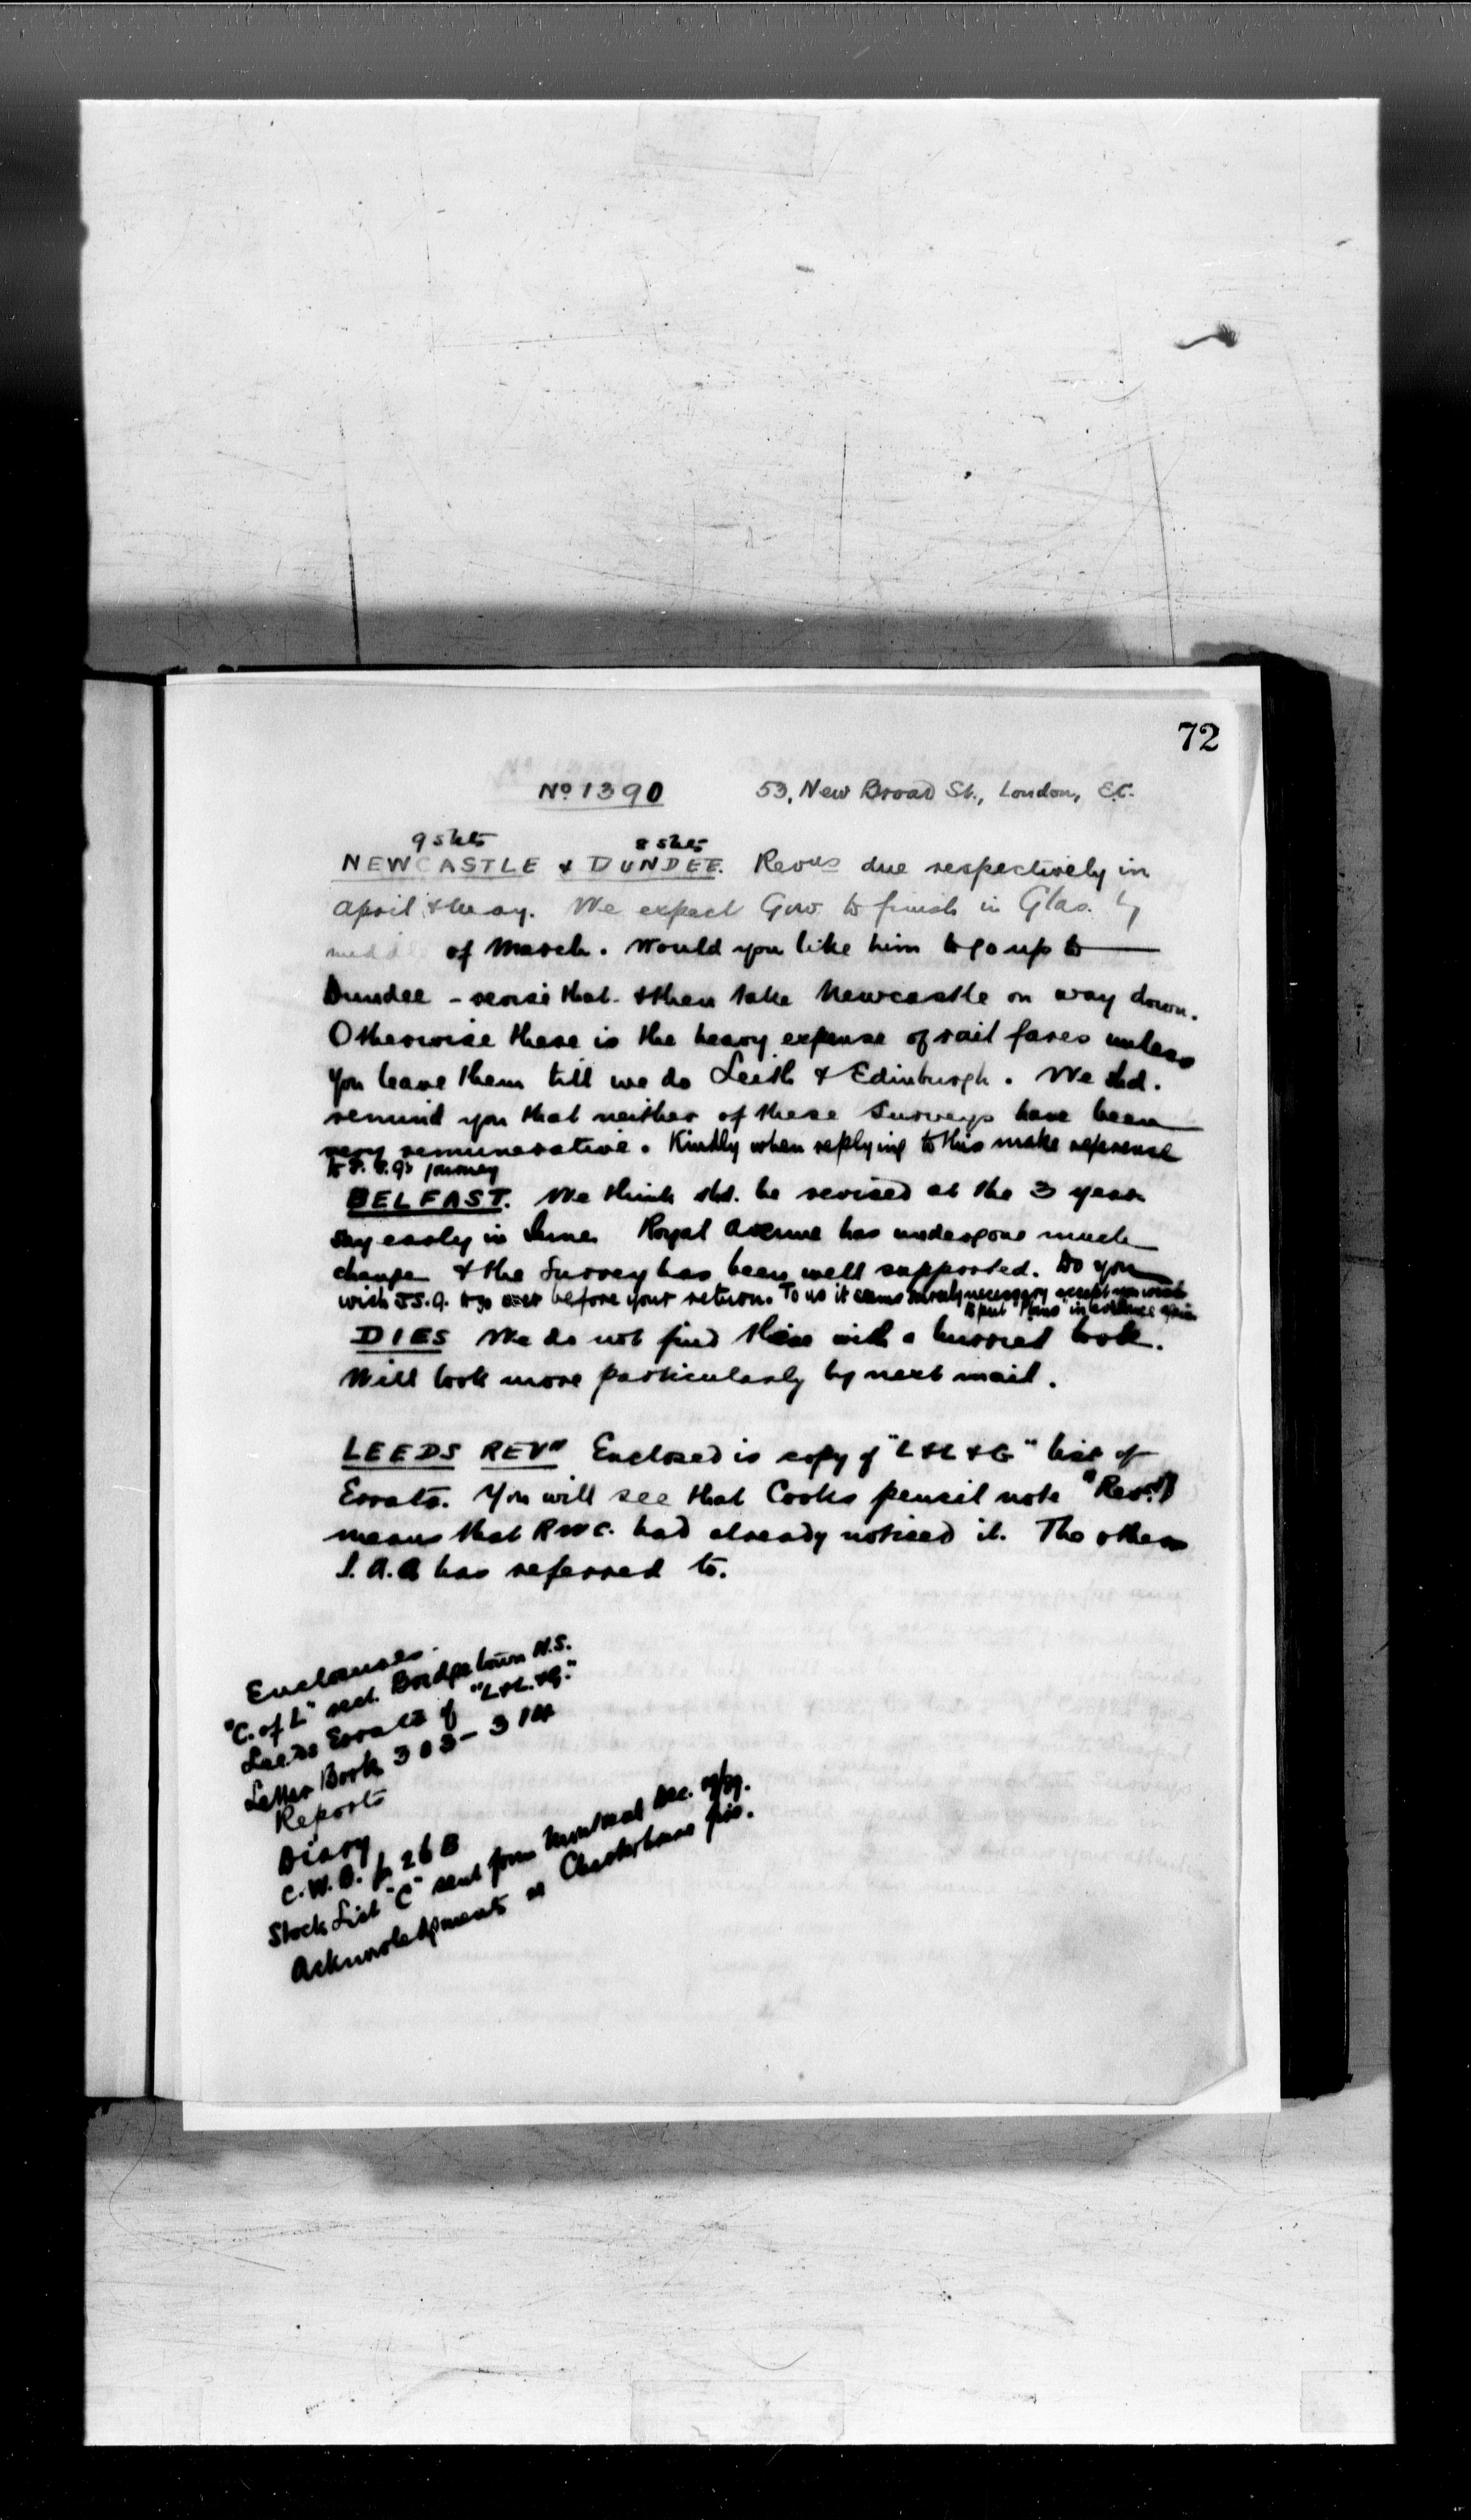 72
No 1390 53, New Broad St., London, E.C.
9 shts 8 shts
NEWCASTLE & DUNDEE. Revns due respectively in
April & May. We expect Gow to finish in Glas. by
of March. Would you like him to go up to
Dundee - revise that - & then take Newcastle on way down.
Otherwise there is the heavy expense of rail fares unless
you leave them till we do Leith & Edinburgh. We shd.
remind you that neither of these surveys have been
very remunerative. Kindly when replying to this make reference
to journey
BELFAST. We think shd. be revised at the 3 years
say early in June. Royal Avenue has undergone much
change & the Survey has been well supported. Do you
wish J.S.A. to go over before your return. To us it seems necessary except you wish
to put "Plans" in evidence again
DIES We do not find these with a hurried look.
Will look more particularly by next mail.
LEEDS REVn Enclosed is copy of "L & L & G" list of
Errata. You will see that Cooks pencil note "Revd"
means that RWC. had already noticed it. The others
J.A.A has referred to.
Enclosures.
"C. of L" rect. Bridgetown N.S.
Leeds Errata of "L & L. & G."
Letter Book 303 - 314
Reports
Diary
C.W.B. fo 26 B
Stock List "C" sent from Montreal Dec.
Acknowledgments